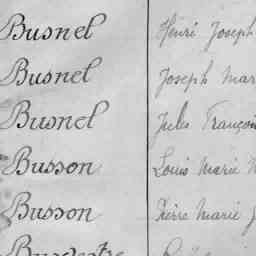 Busnel Henri Joseph
Busnel Joseph Mar
Busnel Jules François
Busson Louis Marie
Busson Pierre Marie J